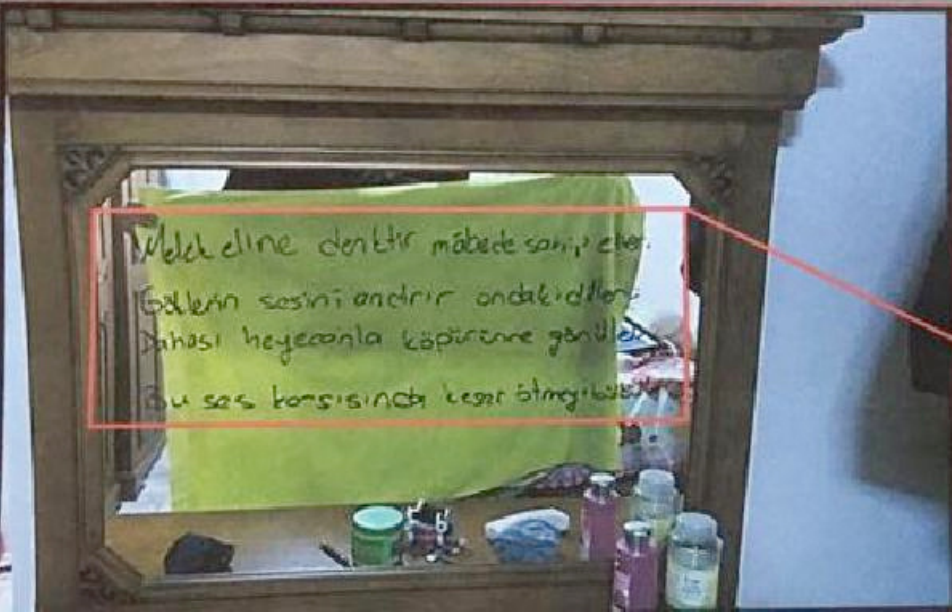 Melek eline denktir mâbede sahip eller.
Göllerin sesini andırır ondaki diller.
Dahası heyecanla köpürünce gönüller
Bu ses karşısında keser ötmeyi bülbüller